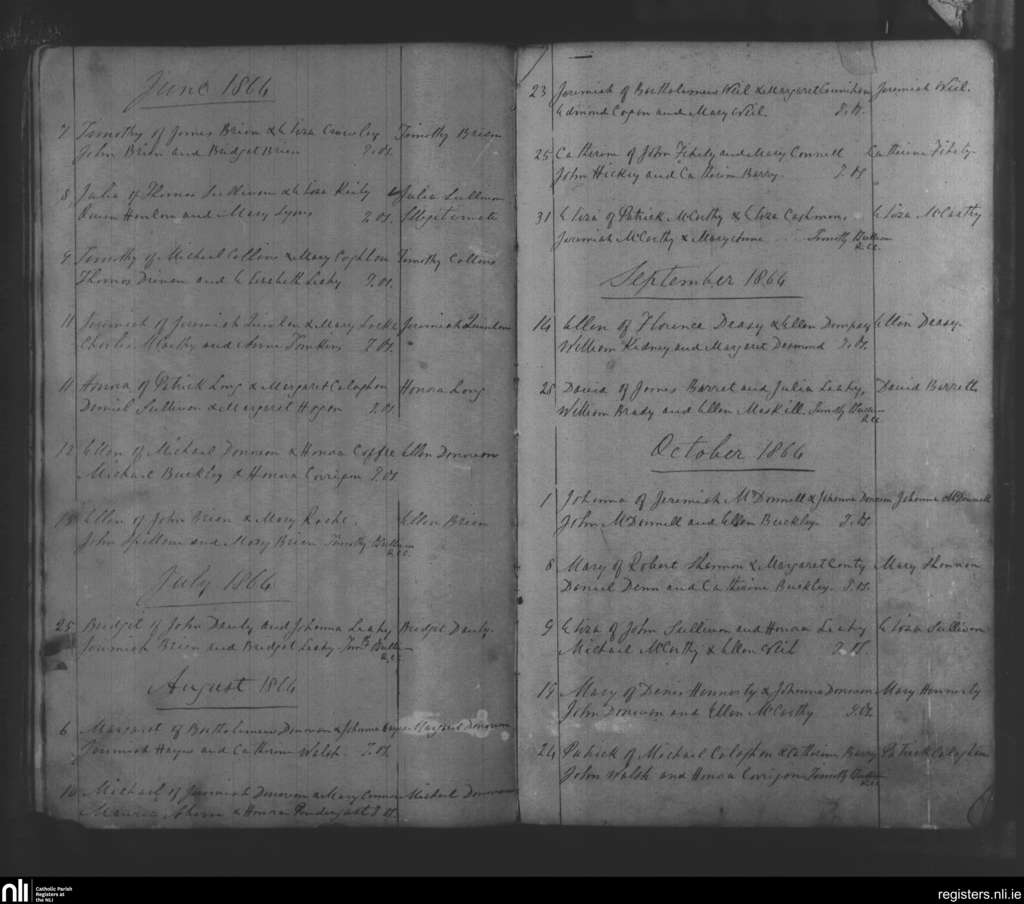 June 1864
7 Timothy of James Brien & Eliza Crowley Timothy Brien
John Brien and Bridget Brien T.B.
8 Julia of Thomas Sullivan & Eliza Julia Sullivan
Owen Hanlon and Mary Lyons T.B. Illegitimate
9 Timothy of Michael Collins & Mary Coghlan Timothy Collins
Thomas Drinan and Elizabeth Leahy T.B.
11 Jeremiah of Jeremiah Quinlan & Mary Jeremiah Quinlan
Charles McCarthy and Anne Tomkins T.B.
11 Honora of Patrick Long & Margaret Calaghan Honora Long
Daniel Sullivan & Margaret Hogan T.B.
12 Ellen of Michael Donovan & Honora Ellen Donovan
Michael Buckley & Honora Corrigan T.B.
Ellen of John Brien & Mary Roche. Ellen Brien
John Spillane and Mary Brien Timothy
R.C.C.
July 1864
25 Bridget of John Dauly and Johanna Leahy Bridget Dauly.
Jeremiah Brien and Bridget Leahy
R.C.C.
August 1864
6 Margaret of Bartholomew Donovan & Johanna Margaret Donovan
Jeremiah Hayes and Catherine Walsh T.B.
Michael of Jeremiah Donovan & Mary Connor Michael Donovan
Maurice Ahern & Honora Pendergast T.B.
23 Jeremiah of Bartholomew Neil & Margaret Jeremiah Neil.
Edmond Cogan and Mary Neil. T.B.
25 Catherine of John Fihely and Mary Connell Catherine Fihely.
John Hickey and Catherine Barry. T.B.
31 Eliza of Patrick McCarthy & Eliza Cashman. Eliza McCarthy
Jeremiah McCarthy & Mary Anne Timothy
R.C.C.
September 1864
14 Ellen of Florence Deasy & Ellen Dempsey Ellen Deasy.
William Kidney and Margaret Desmond T.B.
28 David of James Barret and Julia Leahy, David Barrett
William Brady and Ellen Maskill. Timothy
R.C.C.
October 1864
1 Johanna of Jeremiah McDonnell & Johanna Donovan Johanna McDonnell
John McDonnell and Ellen Buckley. T.B.
8 Mary of Robert Shannon & Margaret Canty Mary Shannon
Daniel Denn and Catherine Buckley. T.B.
9 Eliza of John Sullivan and Honora Leahy Eliza Sullivan
Michael McCarthy & Ellen Neil T.B.
19 Mary of Denis Hennesty & Johanna Donovan Mary Hennesty
John Donovan and Ellen McCarthy T.B.
24 Patrick of Michael Calaghan & Catherine Barry Patrick Calaghan
John Walsh and Honora Corrigan Timothy
R.C.C.
nli Catholic Parish
Registers at
the NLI
registers.nli.ie